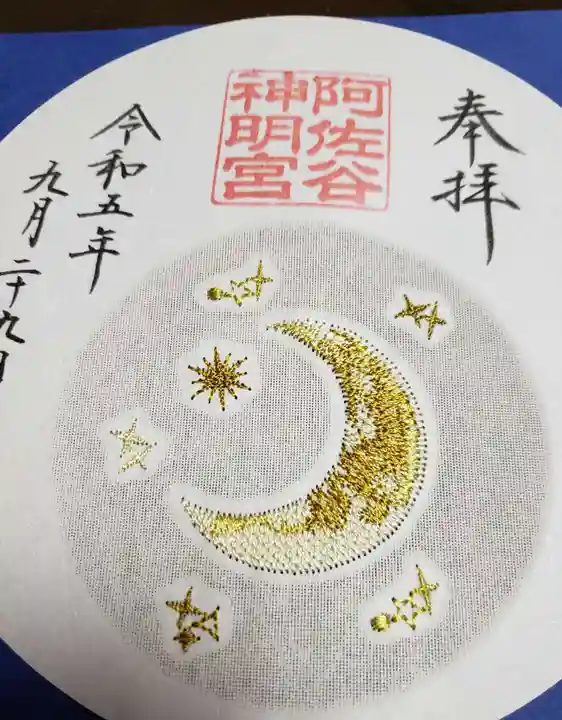 奉拝
阿佐谷
神明宮
令和五年
九月二十九日